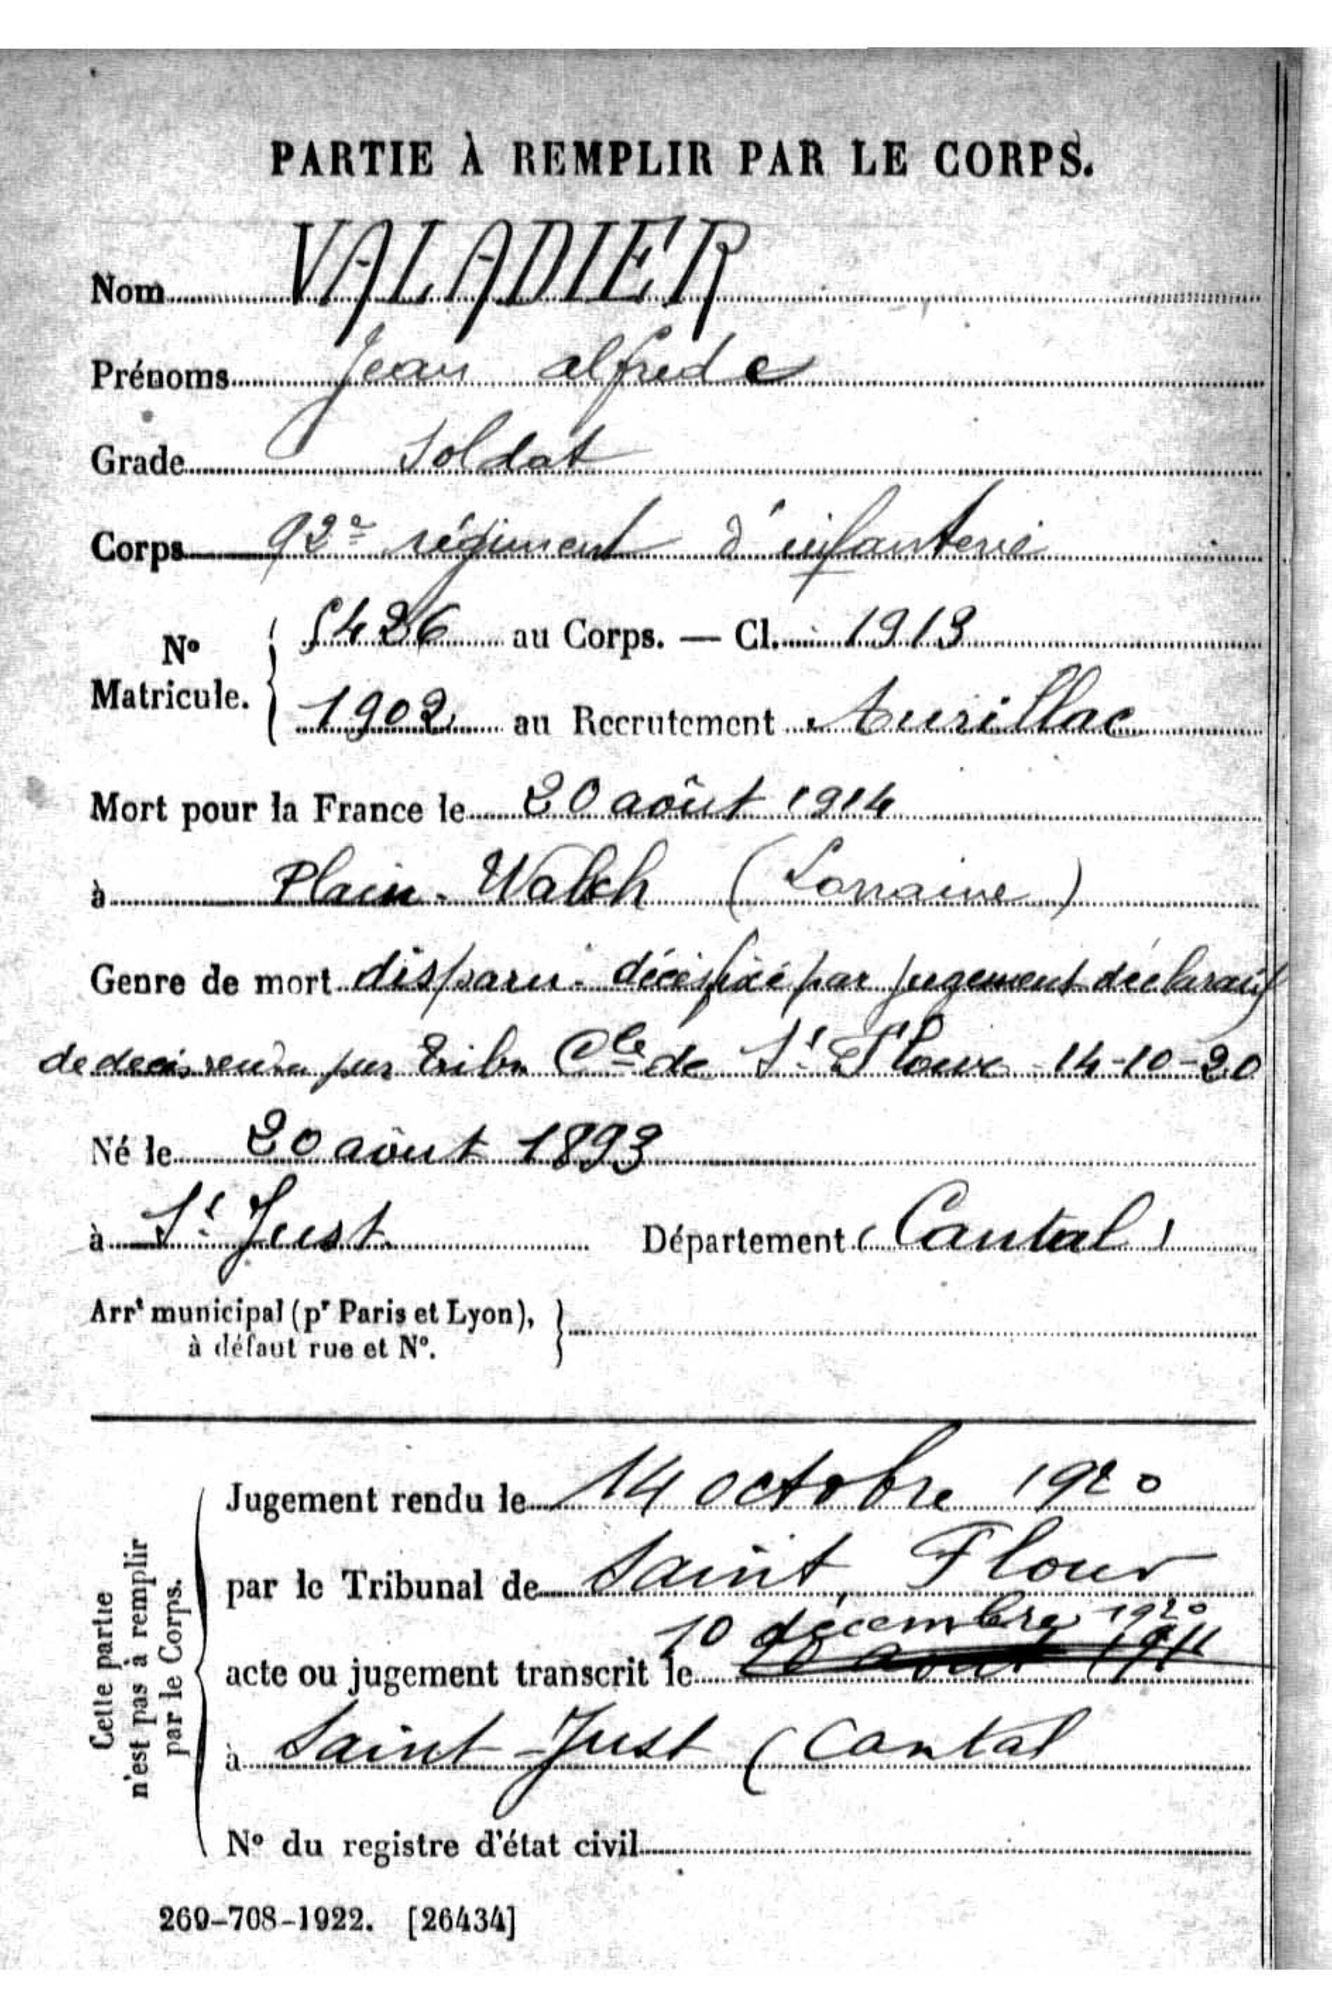 PARTIE À REMPLIR PAR LE CORPS.
Nom VALADIER
Prénoms Jean alfred
Grade Soldat
Corps 92e régiment d'infanterie
No Matricule. { 5426 au Corps. — Cl. 1913
1902 au Recrutement Aurillac
Mort pour la France le 20 août 1914
à Plain-Walsch (Lorraine)
Genre de mort disparu - décès fixé par jugement déclaratif
de décès rendu par Tribn Cle de St Flour 14-10-20
Né le 20 août 1893
à St Just Département (Cantal)
Arrt municipal (pr Paris et Lyon), }
à défaut rue et No.
Cette partie
n'est pas à remplir
par le Corps.
Jugement rendu le 14 octobre 1920
par le Tribunal de Saint Flour
10 décembre 1920
acte ou jugement transcrit le
à Saint-Just (Cantal
No du registre d'état civil
269-708-1922. [26434]